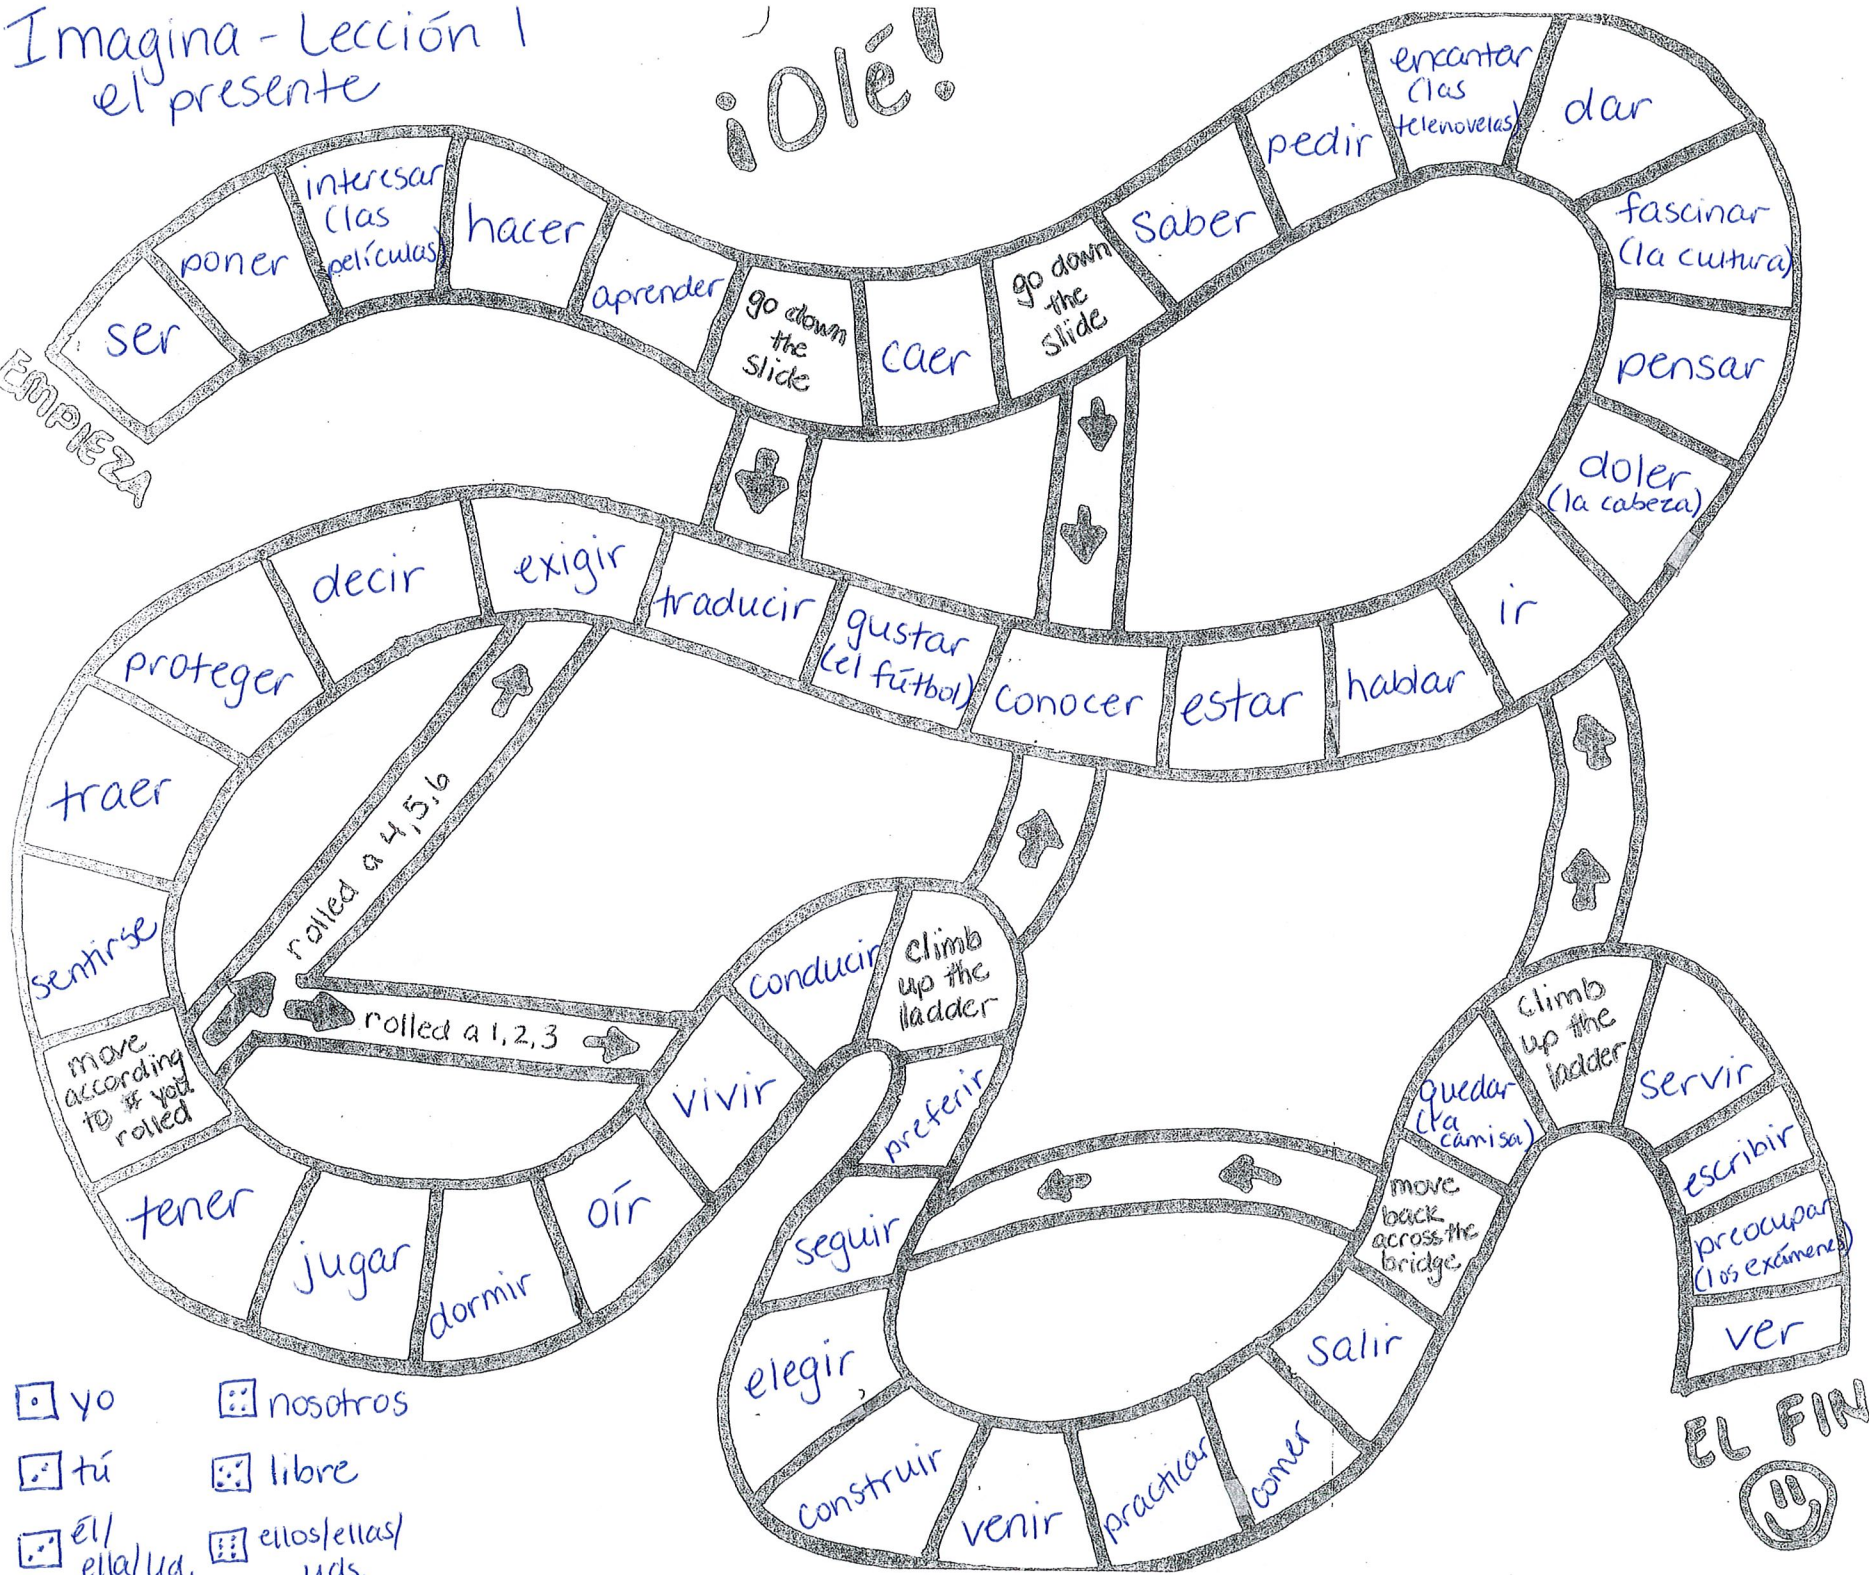 Imagina - Lección 1
el presente
¡Olé!
EMPIEZA
ser
poner
interesar
(las
películas)
hacer
aprender
go down
the
slide
caer
go down
the
slide
saber
pedir
encantar
(las
telenovelas)
dar
fascinar
(la cultura)
pensar
doler
(la cabeza)
ir
hablar
estar
conocer
gustar
(el fútbol)
traducir
exigir
decir
proteger
traer
sentirse
move
according
to # you
rolled
rolled a 4,5,6
rolled a 1,2,3
tener
jugar
dormir
oír
vivir
conducir
climb
up the
ladder
preferir
seguir
elegir
construir
venir
practicar
comer
salir
move
back
across the
bridge
quedar
(la
camisa)
climb
up the
ladder
servir
escribir
preocupar
(los exámenes)
ver
EL FIN
yo
tú
él/
ella/Ud.
nosotros
libre
ellos/ellas/
uds.